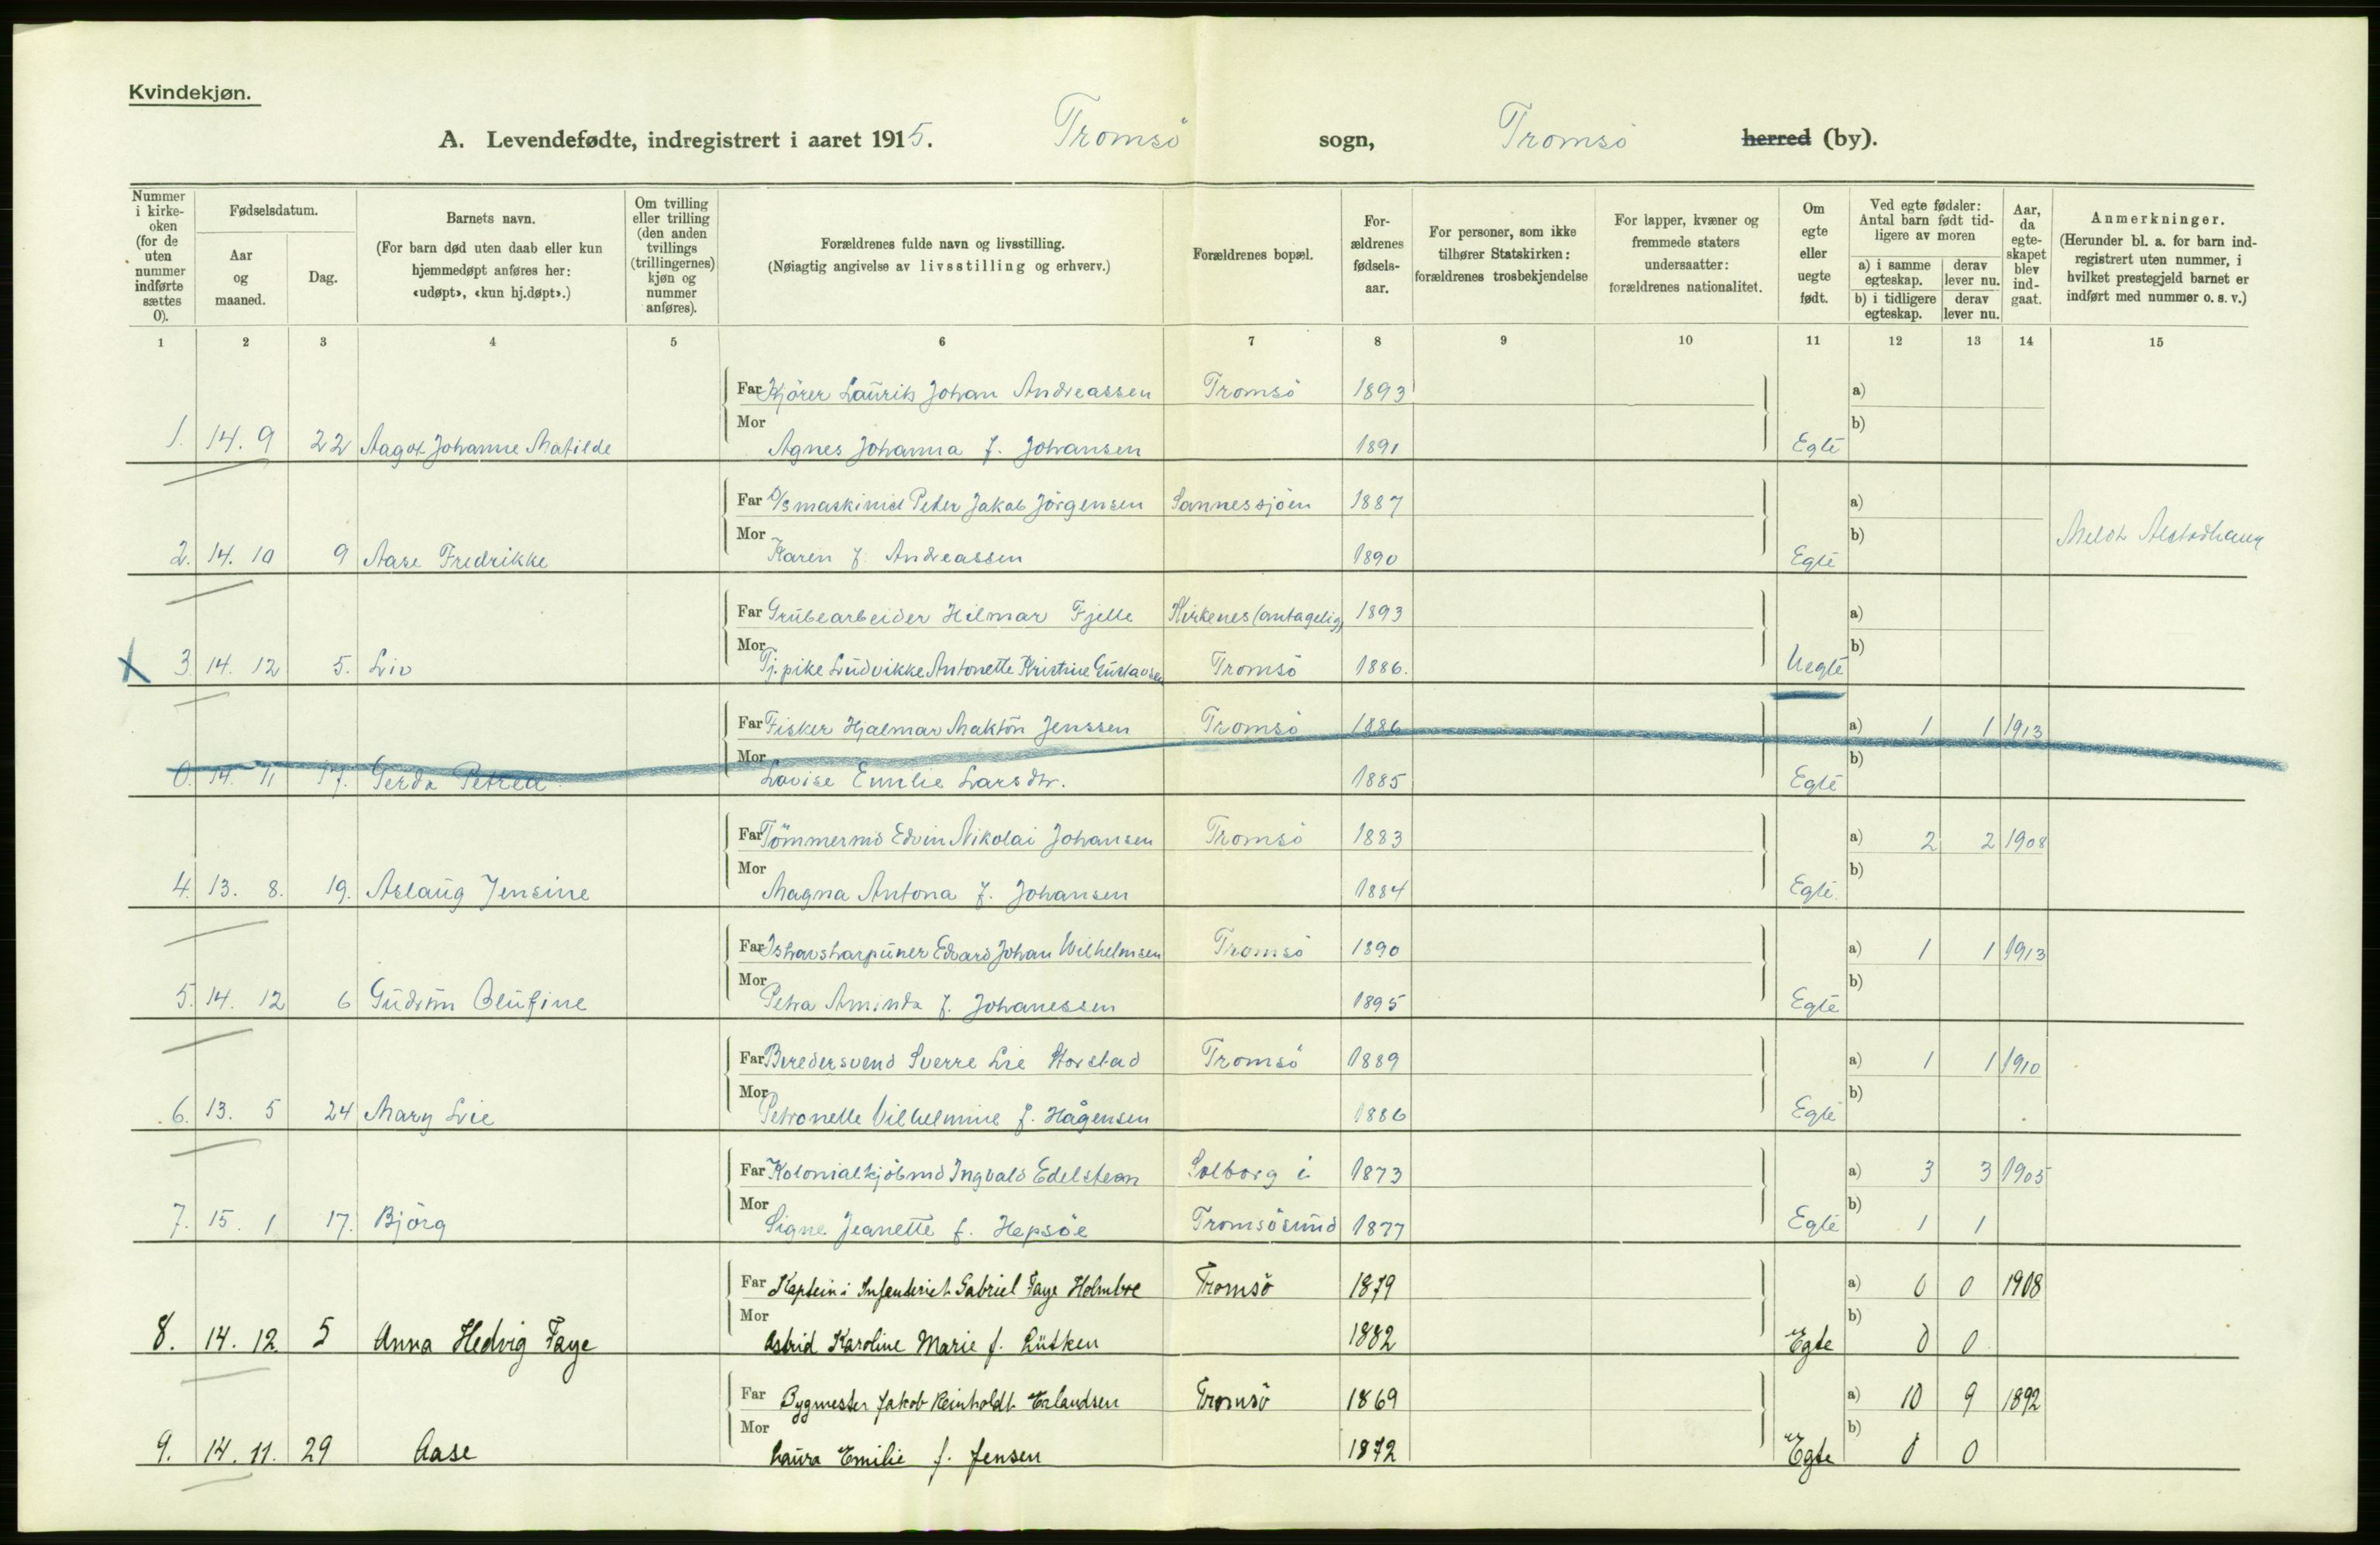 Kvindekjøn.
A. Levendefødte, indregistrert i aaret 1915. Tromsö sogn, Tromsö herred (by).
Nummer i kirke-oken (for de uten nummer indførte sættes 0).
Fødselsdatum.
Aar og maaned.
Dag.
Barnets navn.
(For barn død uten daab eller kun hjemmedøpt anføres her: «udøpt», «kun hj.døpt».)
Om tvilling eller trilling (den anden tvillings (trillingernes) kjøn og nummer anføres).
Forældrenes fulde navn og livsstilling.
(Nøiagtig angivelse av livsstilling og erhverv.)
Forældrenes bopæl.
For-ældrenes fødsels-aar.
For personer, som ikke tilhører Statskirken: forældrenes trosbekjendelse
For lapper, kvæner og fremmede staters undersaatter: forældrenes nationalitet.
Om egte eller uegte født.
Ved egte fødsler: Antal barn født tid-ligere av moren
a) i samme egteskap.
derav lever nu.
b) i tidligere egteskap.
derav lever nu.
Aar, da egte-skapet blev ind-gaat.
Anmerkninger.
(Herunder bl. a. for barn ind-registrert uten nummer, i hvilket prestegjeld barnet er indført med nummer o. s. v.)
1 2 3 4 5 6 7 8 9 10 11 12 13 14 15
Far Kjörer Laurits Johan Andreassen Tromsö 1893 a)
Mor b)
1. 14. 9 22 Aagot Johanne Matilde Agnes Johanna f. Johansen 1891 Egte
Far D/S maskinist Peter Jakob Jörgensen Sannessjöen 1887 a)
Mor b) Meldt Alstadhaug
2. 14. 10 9 Aase Fredrikke Karen f. Andreassen 1890 Egte
Far Grubearbeider Hilmar Fjelle Kirkenes (antagelig) 1893 a)
Mor b)
X 3 14. 12 5. Liv Tj.pike Ludvikke Antonette Kristine Gustavsen Tromsö 1886. Uegte
Far Fisker Hjalmar Makton Jenssen Tromsö 1886 a) 1 1 1913
Mor b)
0. 14. 11 17. Gerda Petrea Lovise Emilie Larsdtr. 1885 Egte
Far Tömmermd Edvin Nikolai Johansen Tromsö 1883 a) 2 2 1908
Mor b)
4. 13. 8. 19. Aslaug Jensine Magna Antona f. Johansen 1884 Egte.
Far Ishavsharpuner Edvard Johan Wilhelmsen Tromsö 1890 a) 1 1 1913
Mor b)
5. 14. 12 6 Gudrun Olufine Petra Aminda f. Johanessen 1895 Egte
Far Beredersvend Sverre Lie Storstad Tromsö 1889 a) 1 1 1910
Mor b)
6. 13. 5 24 Mary Lie Petronelle Vilhelmine f. Hågensen 1886 Egte
Far Kolonialkjöbmd Ingvald Edelsteen Solborg i 1873 a) 3 3 1905
Mor b)
7. 15. 1 17. Björg Signe Jeanette f. Hepsöe Tromsösund 1877 Egte 1 1
Far Kaptein i Infanteriet Gabriel Faye Holmboe Tromsö 1879 a) 0 0 1908
Mor b)
8. 14. 12. 5 Anna Hedvig Faye Astrid Karoline Marie f. Lütken 1882 Egte 0 0
Far Bygmester Jakob Reinholdt Erlandsen Tromsö 1869 a) 10 9 1892
Mor b)
9. 14. 11. 29 Aase Laura Emilie f. Jensen 1872 Egte 0 0